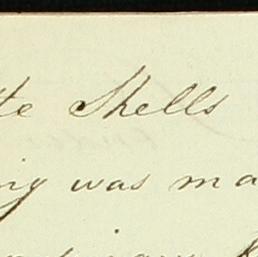 te Shells
ing was ma